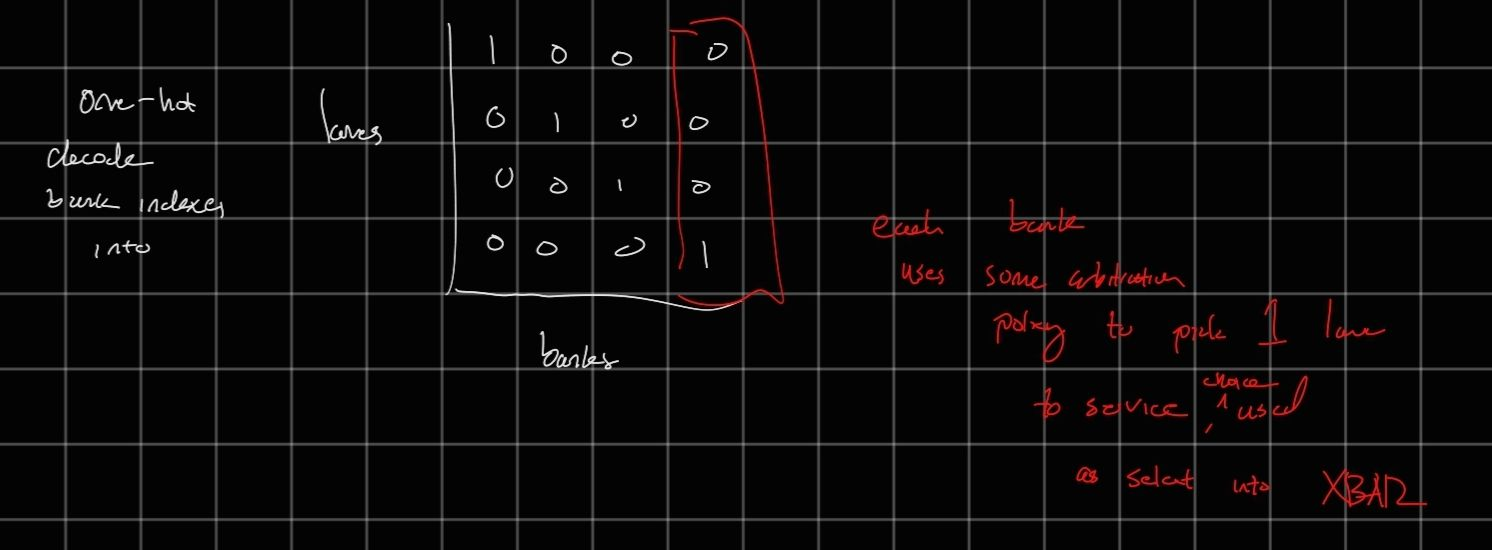 one-hot
decode
bank indexes
into
lanes
1 0 0 0
0 1 0 0
0 0 1 0
0 0 0 1
banks
each bank
uses some arbitration
policy to pick 1 lane
to service, choice used
as select into XBAR